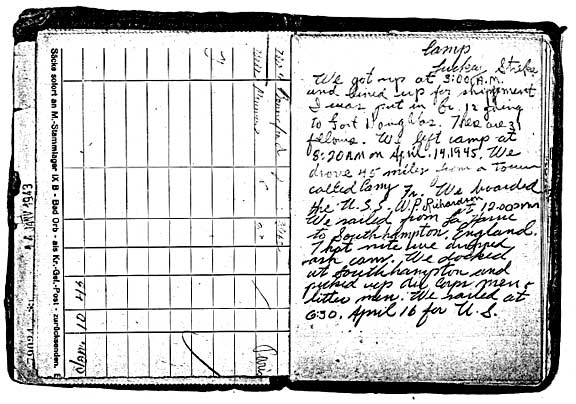 Säcke sofort an M.-Stammlager IX B - Bad Orb - als Kr.-Gef.-Post - zurücksenden.
Camp
Lucky Strike
We got up at 3:00 A.M.
and lined up for shipment
I was put in Gr. 12 going
to Fort Douglas. There are 31
fellows. We left camp at
8:20 AM on April. 14, 1945. We
drove 45 miles from a town
called Cany Fr. We boarded
the U.S.S. W.P. Richardson at 12:00 PM
We sailed from La Havre
to Southhampton, England.
That nite we dropped
ash cans. We docked
at Southhampton and
picked up air corps men &
litter men. We sailed at
6:30. April 16 for U.S.